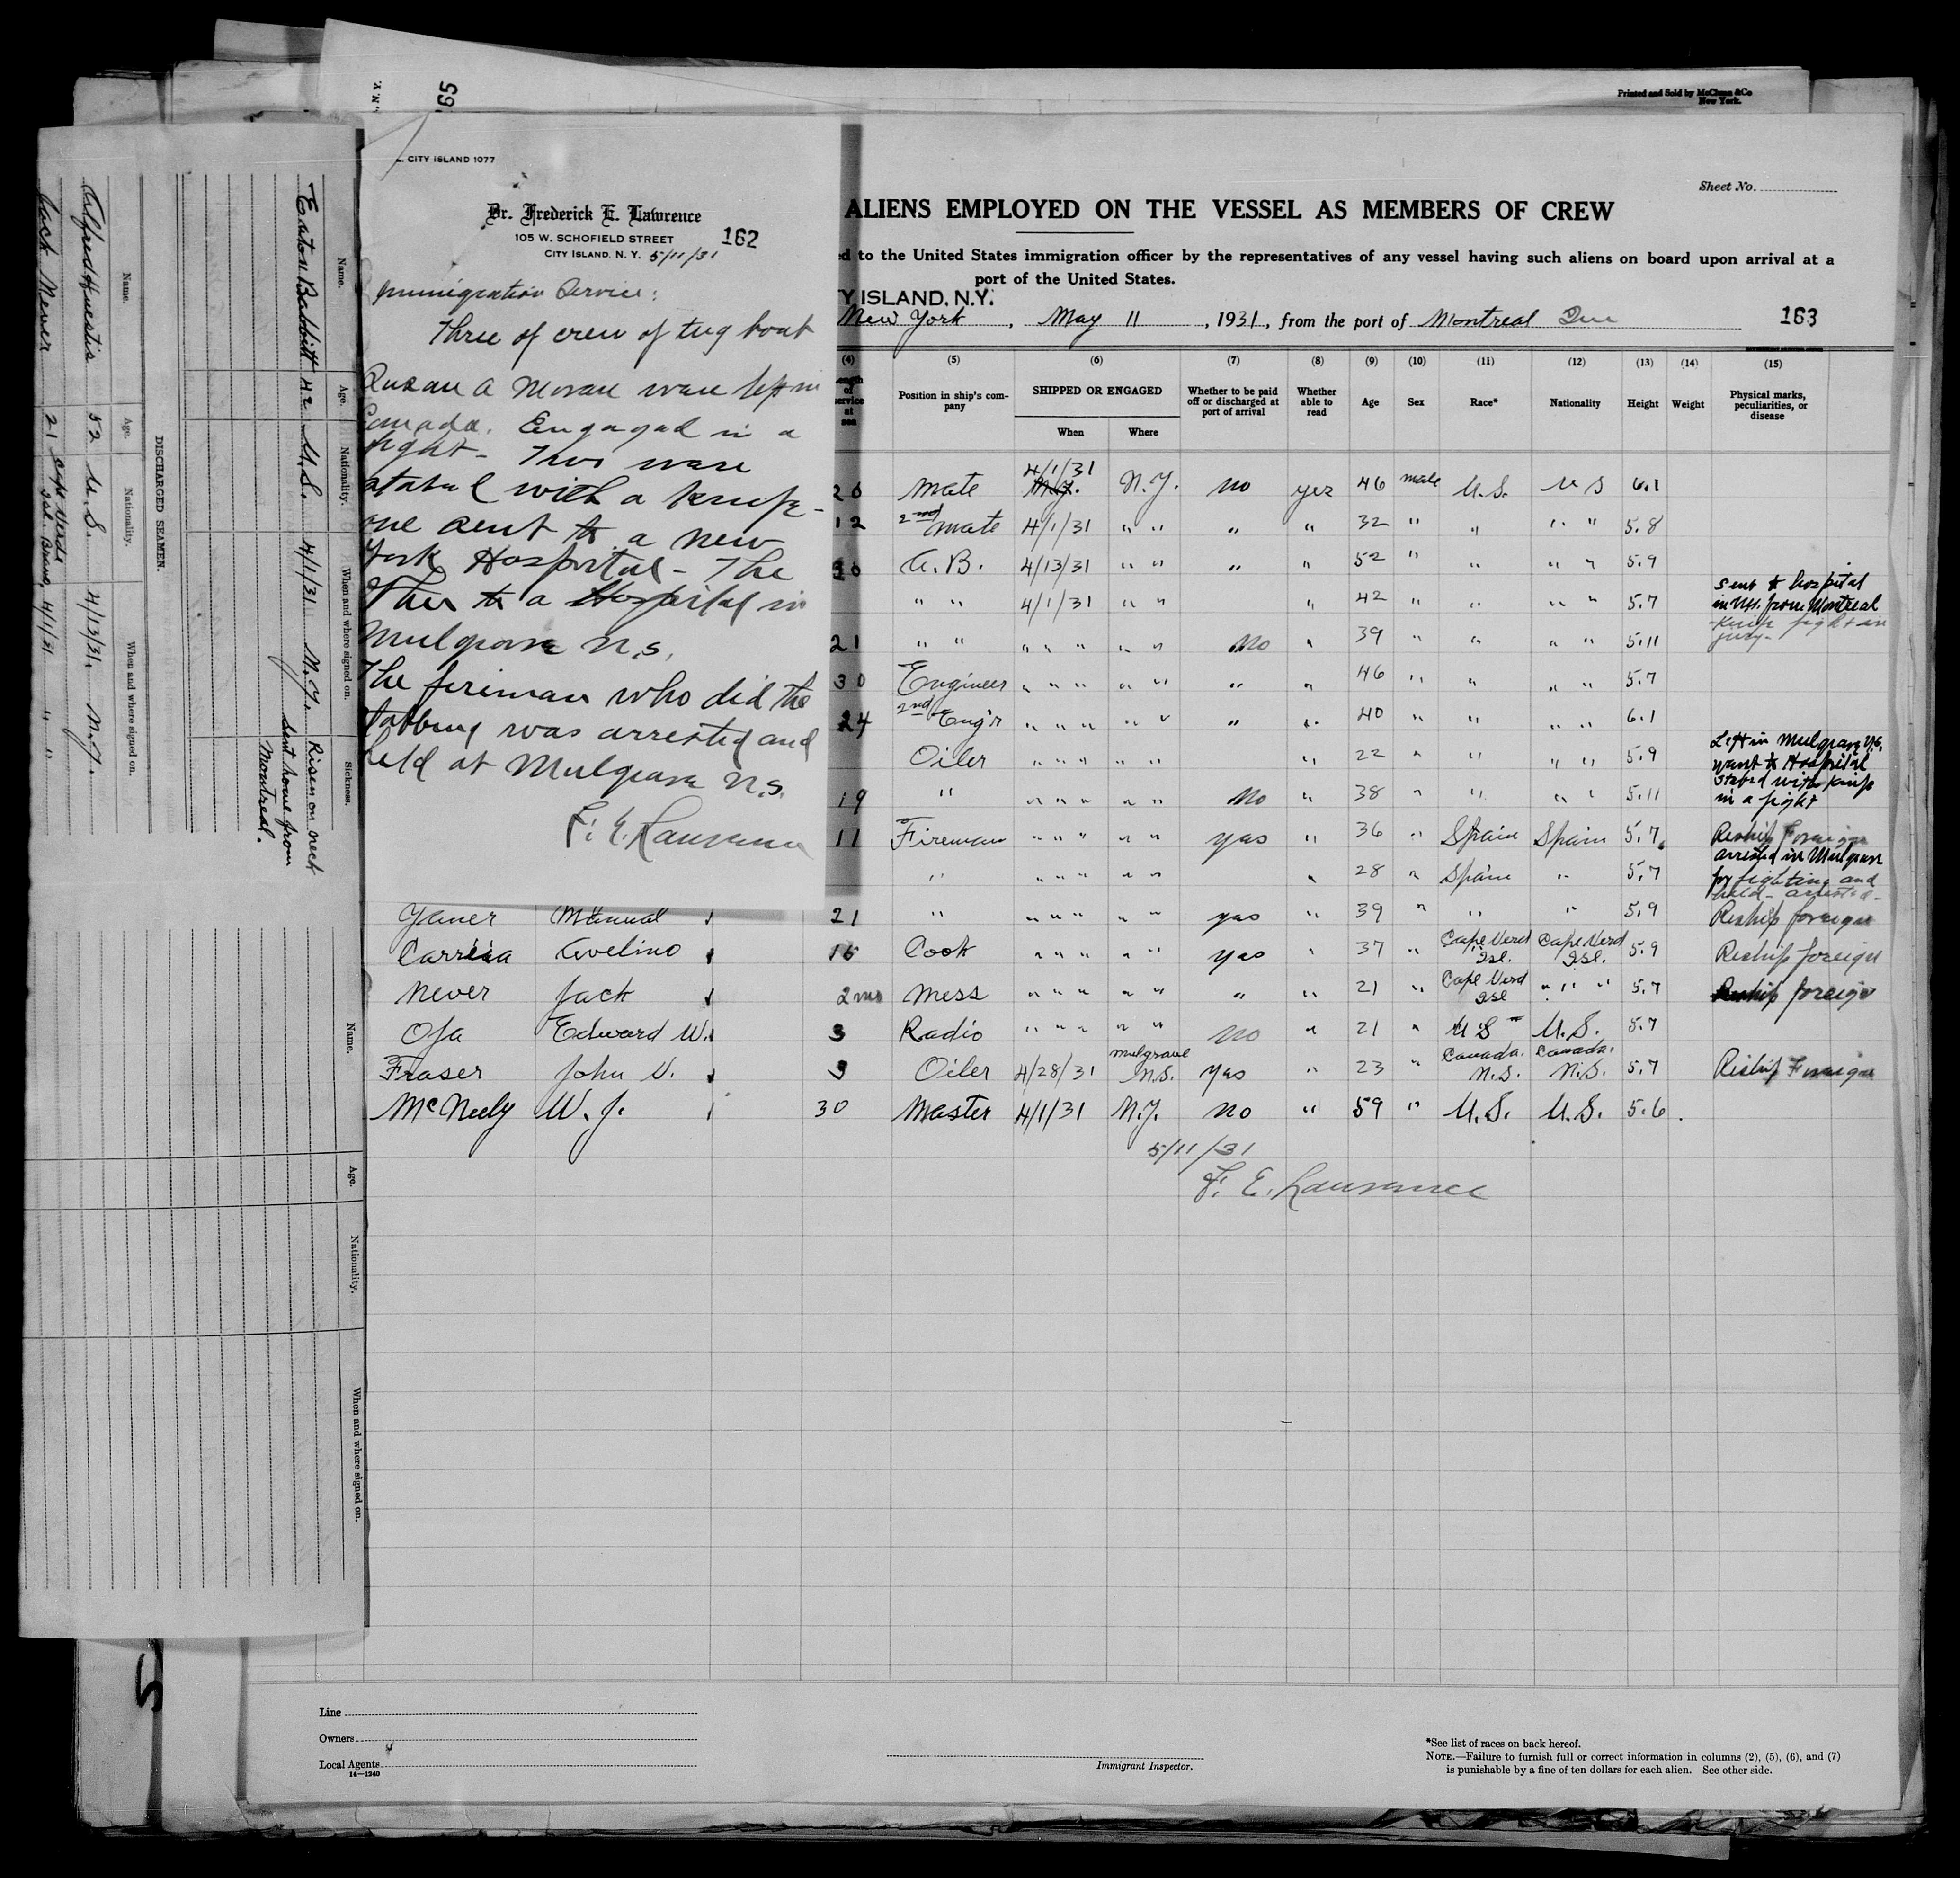 Printed and Sold by McClunn &Co
New York.
N.Y.
65
CITY ISLAND 1077
Dr. Frederick E. Lawrence
105 W. SCHOFIELD STREET
162
CITY ISLAND, N. Y. 5/11/31
Immigration Service:
Three of crew of tug boat
Susan A Moran were left in
Canada. Engaged in a
fight - Two were
stabed with a knife -
one sent to a New
York Hospital - The
other to a Hospital in
Mulgrave N.S.
The fireman who did the
stabbing was arrested and
held at Mulgrave N.S.
F. E. Lawrence
Sheet No.
ALIENS EMPLOYED ON THE VESSEL AS MEMBERS OF CREW
ed to the United States immigration officer by the representatives of any vessel having such aliens on board upon arrival at a
port of the United States.
Y ISLAND, N.Y.
New York, May 11, 1931, from the port of Montreal Que 163
(4) (5) (6) (7) (8) (9) (10) (11) (12) (13) (14) (15)
ength of service at sea Position in ship's company SHIPPED OR ENGAGED When Where Whether to be paid off or discharged at port of arrival Whether able to read Age Sex Race* Nationality Height Weight Physical marks, peculiarities, or disease
26 Mate 4/1/31 N.Y. no yes 46 male U.S. U S 6.1
12 2nd Mate 4/1/31 " " " " 32 " " " " 5.8
A.B. 4/13/31 " " " " 52 " " " " 5.9
" " 4/1/31 " " " 42 " " " " 5.7 Sent to hospital in U.S. from Montreal Knife fight injury-
21 " " " " " " " No " 39 " " " " 5.11
30 Engineer " " " " " " " 46 " " " " 5.7
24 2nd Eng'r " " " " " " " 40 " " " " 6.1
Oiler " " " " " " 22 " " " " 5.9 Left in Mulgrave N.S. went to Hospital Stabed with knife in a fight
19 " " " " " " No " 38 " " " " 5.11
11 Fireman " " " " " yes " 36 " Spain Spain 5.7 Reship Foreign
" " " " " " " 28 " Spain " 5.7 arrested in Mulgrave for fighting and held - arrested -
Yaner Manual 21 " " " " " " yes " 39 " " " 5.9 Reship foreign
Carreia Avelino 16 Cook " " " " " yes " 37 " Cape Verd Isl. Cape Verd Isl. 5.9 Reship foreign
Never Jack 2 mo Mess " " " " " " " 21 " Cape Verd Isl " " " 5.7 Reship foreign
Oja Edward W. 3 Radio " " " " " no " 21 " U S U.S. 5.7
Fraser John V. 3 Oiler 4/28/31 Mulgrave N.S. Yes " 23 " Canada. N.S. Canada. N.S. 5.7 Reship Foreign
McNeely W. J. 30 Master 4/1/31 N.Y. no " 59 " U.S. U.S. 5.6
5/11/31
F. E. Lawrence
Line
Owners
Local Agents
14—1240
Immigrant Inspector.
*See list of races on back hereof.
NOTE.—Failure to furnish full or correct information in columns (2), (5), (6), and (7)
is punishable by a fine of ten dollars for each alien. See other side.
Name. Age. Nationality. When and where signed on. Sickness.
Eaton Babbitt 42 U.S. 4/1/31 N.Y. Risen on neck
Sent home from
Montreal.
DISCHARGED SEAMEN.
Name. Age. Nationality. When and where signed on.
Alfred Huestis 52 U.S. 4/13/31. N.Y.
Jack Never 21 Cape Verde Isl. Brava, 4/1/31 " "
Name. Age. Nationality. When and where signed on.
5